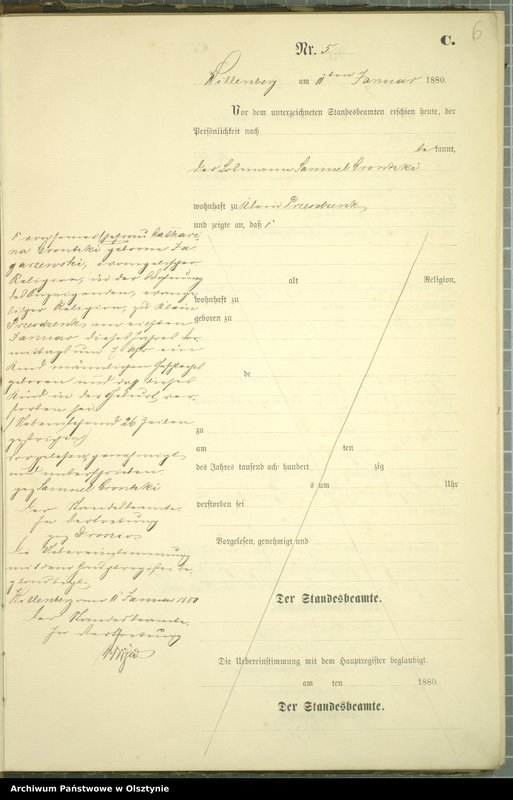 6
C.
Nr. 5
Willenberg am 11ten Januar 1880.
Vor dem unterzeichneten Standesbeamten erschien heute, der
Persönlichkeit nach
be kannt,
der Losmann Samuel Grontzki
wohnhaft zu Klein Przesdzenk
und zeigte an, daß
seine Ehefrau Kathari-
na Grontzki geborne
evangelischer
Religion, in der Wohnung
des Anzeigenden, evange-
lischer Religion, zu Klein
Przesdzenk am
Januar dieses Jahres Vor-
mittags um 7 Uhr ein
Kind männlichen Geschlechts
geboren und daß dieses
Kind in der Geburt ver-
storben sei
Nebenstehend 26 Zeilen
gestrichen
Vorgelesen, genehmigt
und unterschrieben
gez Samuel Grontzki
Der Standesbeamte
In Vertretung
gez
Die Uebereinstimmung
mit dem Hauptregister be-
glaubigt.
Willenberg am 11 Januar 1880
Der Standesbeamte
In Vertretung
alt Religion,
wohnhaft zu
geboren zu
de
zu
am ten
des Jahres tausend acht hundert zig
s um Uhr
verstorben sei
Vorgelesen, genehmigt und
Der Standesbeamte.
Die Uebereinstimmung mit dem Hauptregister beglaubigt.
am ten 1880.
Der Standesbeamte.
Archiwum Państwowe w Olsztynie